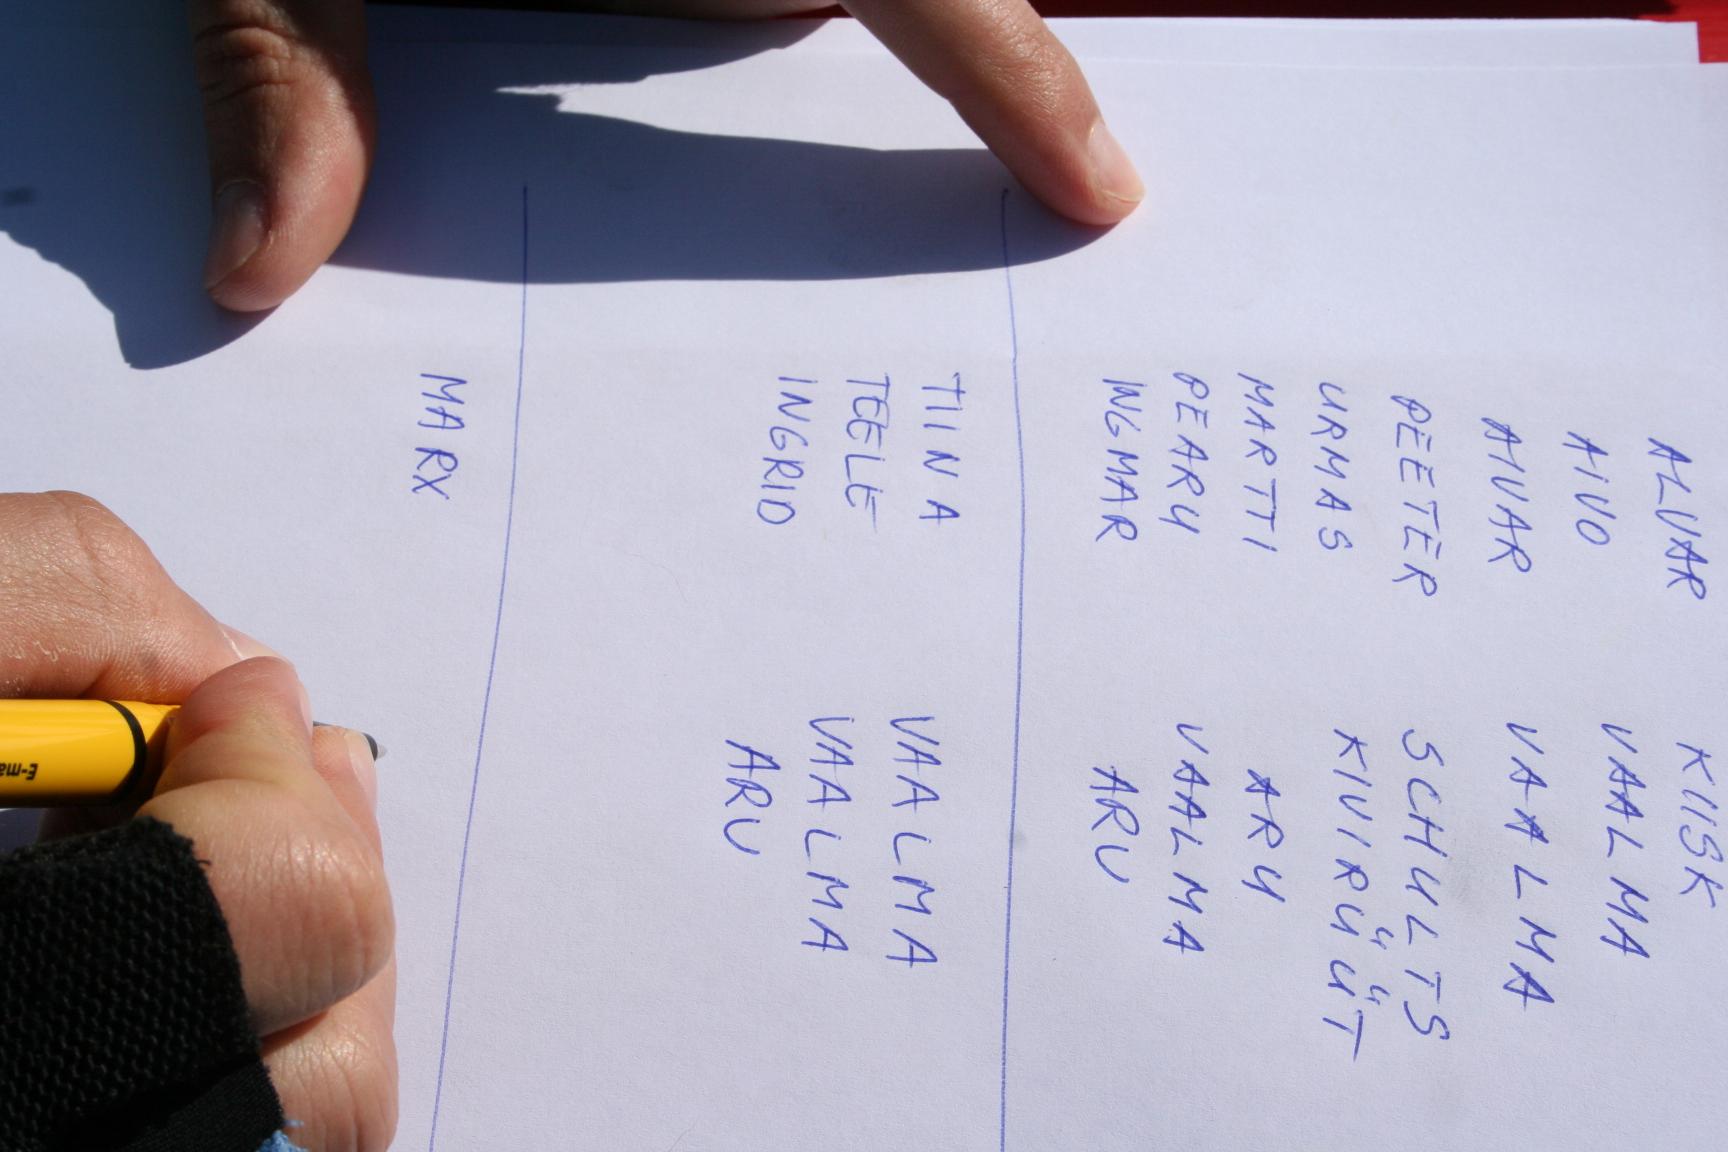 ALVAR KIISK
AIVO VAALMA
AIVAR VAALMA
PEETER SCHULTS
URMAS KIVIRÜÜT
MARTTI ARU
PEARU VAALMA
INGMAR ARU
TIINA VAALMA
TEELE VAALMA
INGRID ARU
MARX
E-ma